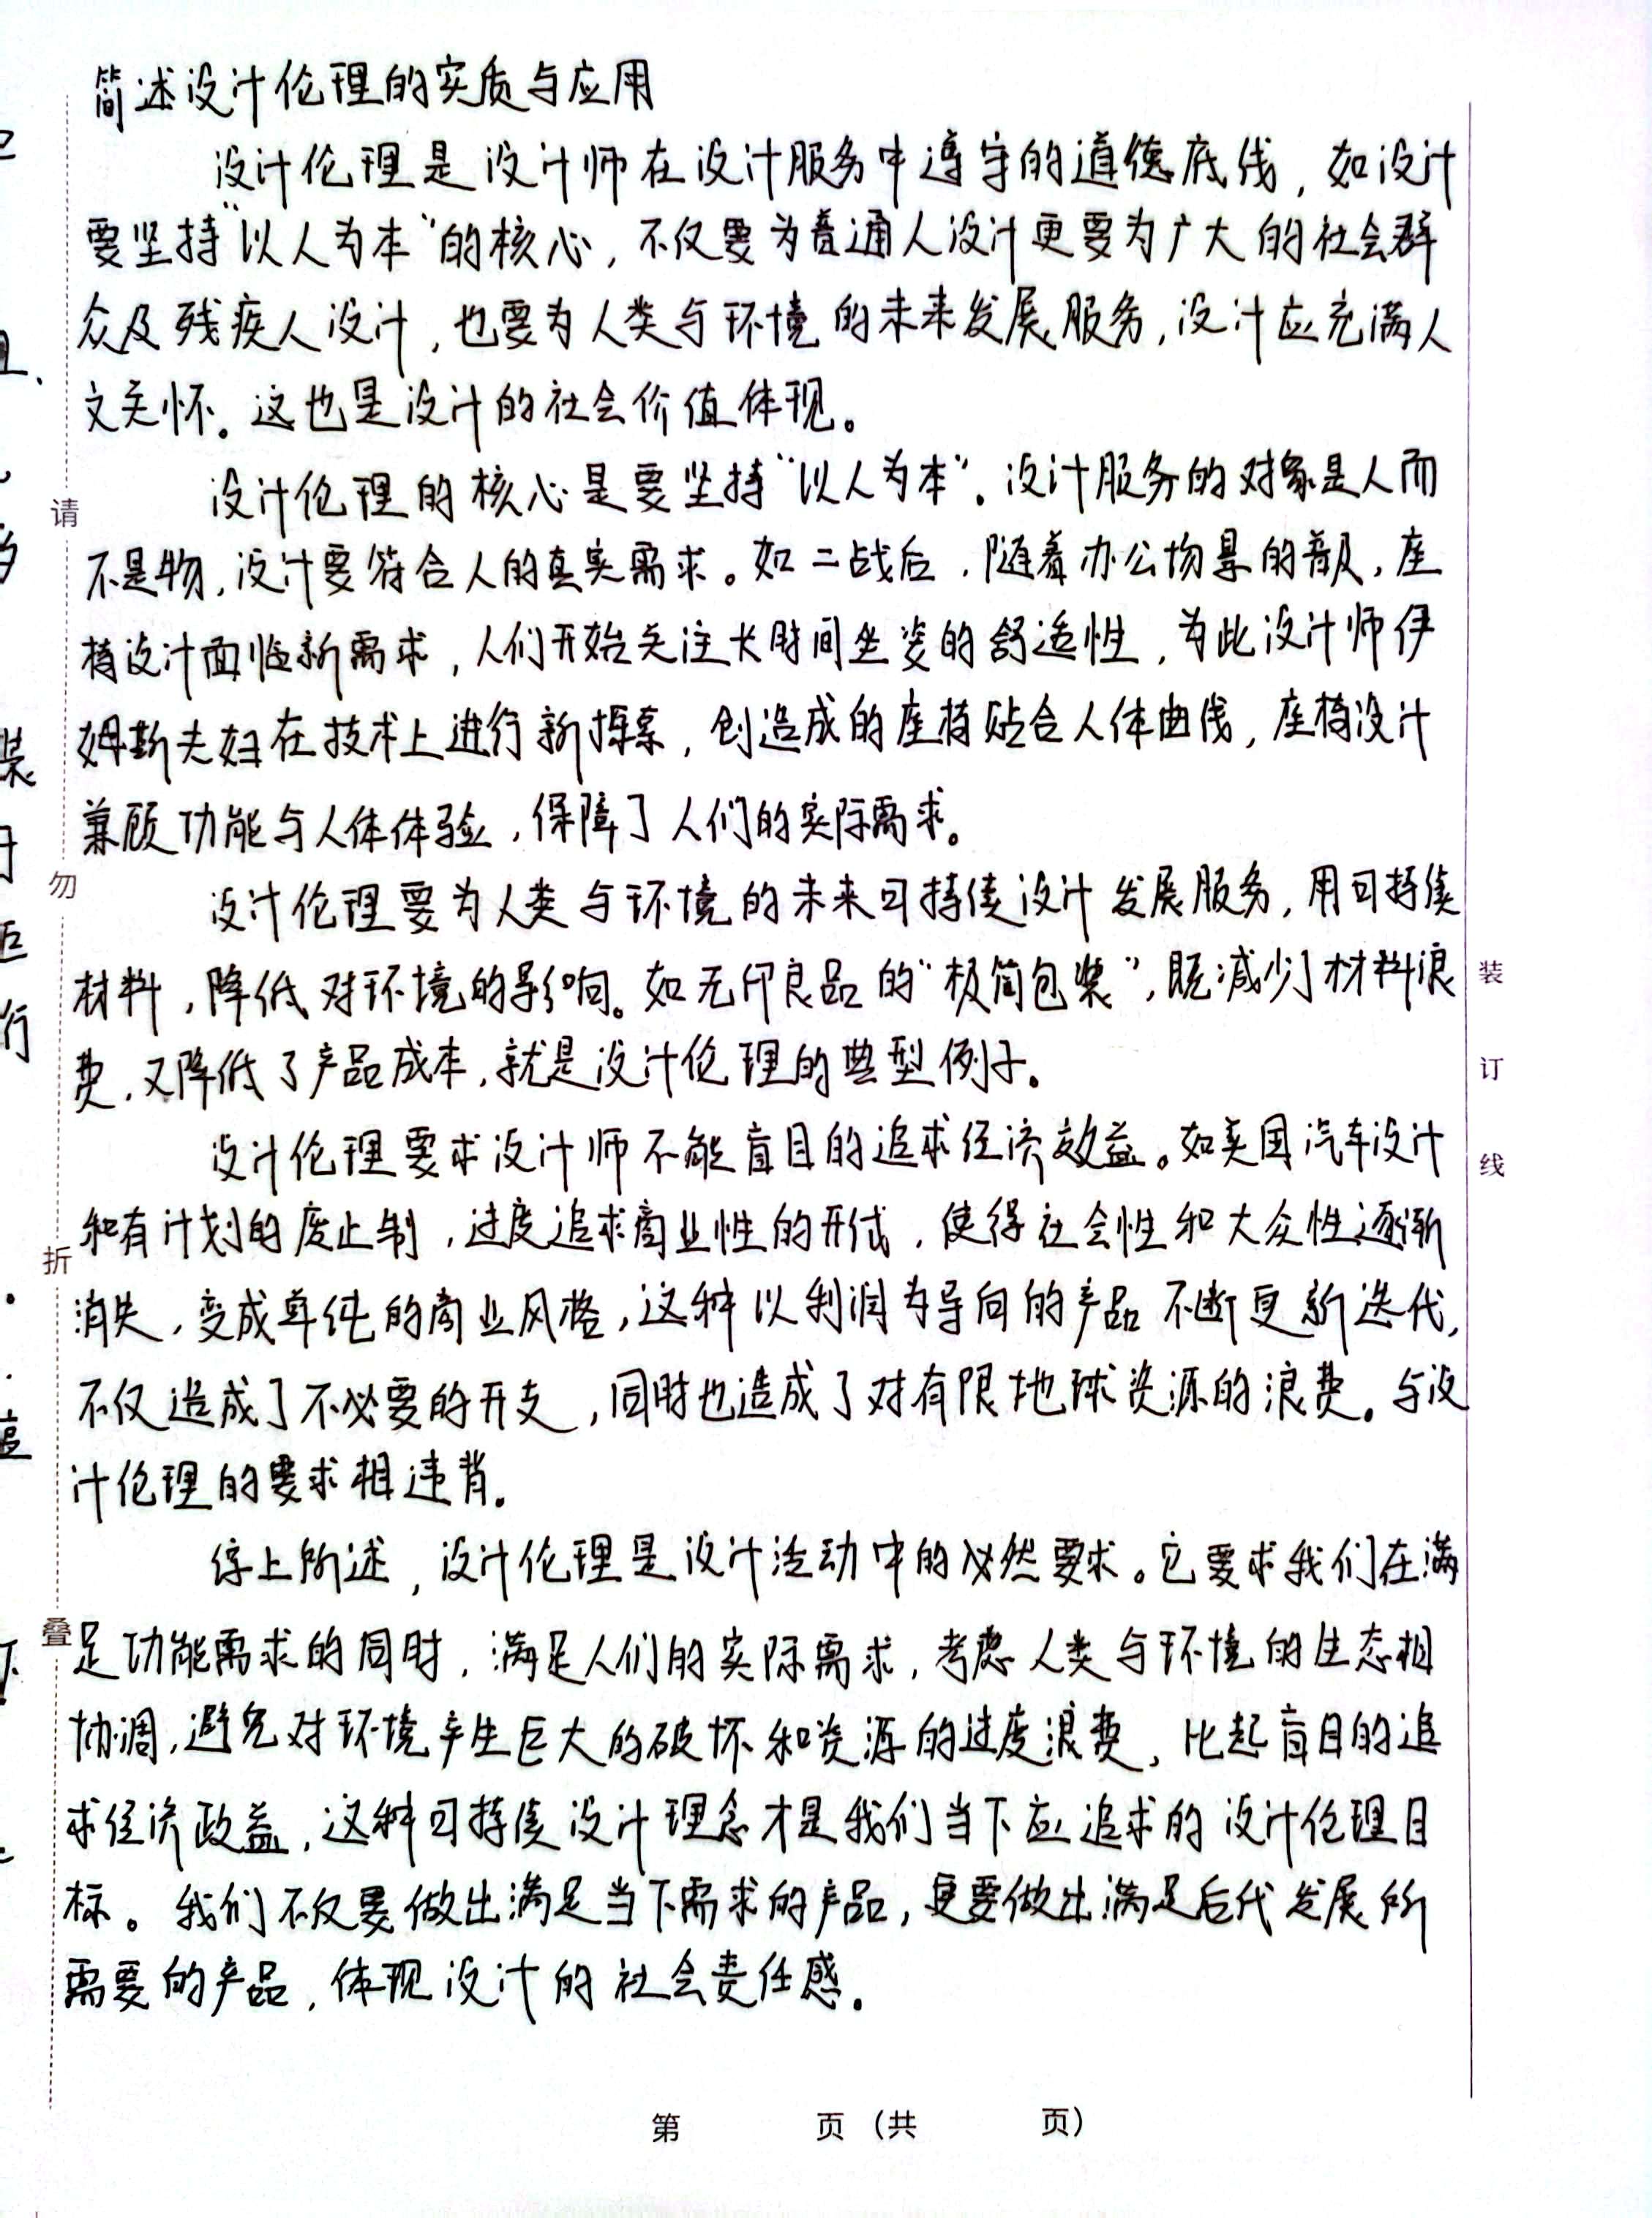 简述设计伦理的实质与应用
设计伦理是设计师在设计服务中遵守的道德底线，如设计
要坚持“以人为本”的核心，不仅要为普通人设计更要为广大的社会群
众及残疾人设计，也要为人类与环境的未来发展服务，设计应充满人
文关怀。这也是设计的社会价值体现。
设计伦理的核心是要坚持“以人为本”。设计服务的对象是人而
不是物，设计要符合人的真实需求。如二战后，随着办公场景的普及，座
椅设计面临新需求，人们开始关注长时间坐姿的舒适性，为此设计师伊
姆斯夫妇在技术上进行新探索，创造成的座椅贴合人体曲线，座椅设计
兼顾功能与人体体验，保障了人们的实际需求。
设计伦理要为人类与环境的未来可持续设计发展服务，用可持续
材料，降低对环境的影响。如无印良品的“极简包装”，既减少了材料浪
费，又降低了产品成本，就是设计伦理的典型例子。
设计伦理要求设计师不能盲目的追求经济效益。如美国汽车设计
和有计划的废止制，过度追求商业性的开代，使得社会性和大众性逐渐
消失，变成单纯的商业风格，这种以利润为导向的产品不断更新迭代，
不仅造成了不必要的开支，同时也造成了对有限地球资源的浪费。与设
计伦理的要求相违背。
综上所述，设计伦理是设计活动中的必然要求。它要求我们在满
足功能需求的同时，满足人们的实际需求，考虑人类与环境的生态相
协调，避免对环境产生巨大的破坏和资源的过度浪费，比起盲目的追
求经济政益，这种可持续设计理念才是我们当下应追求的设计伦理目
标。我们不仅要做出满足当下需求的产品，更要做出满足后代发展所
需要的产品，体现设计的社会责任感。
请
勿
折
叠
装
订
线
第 页（共 页）